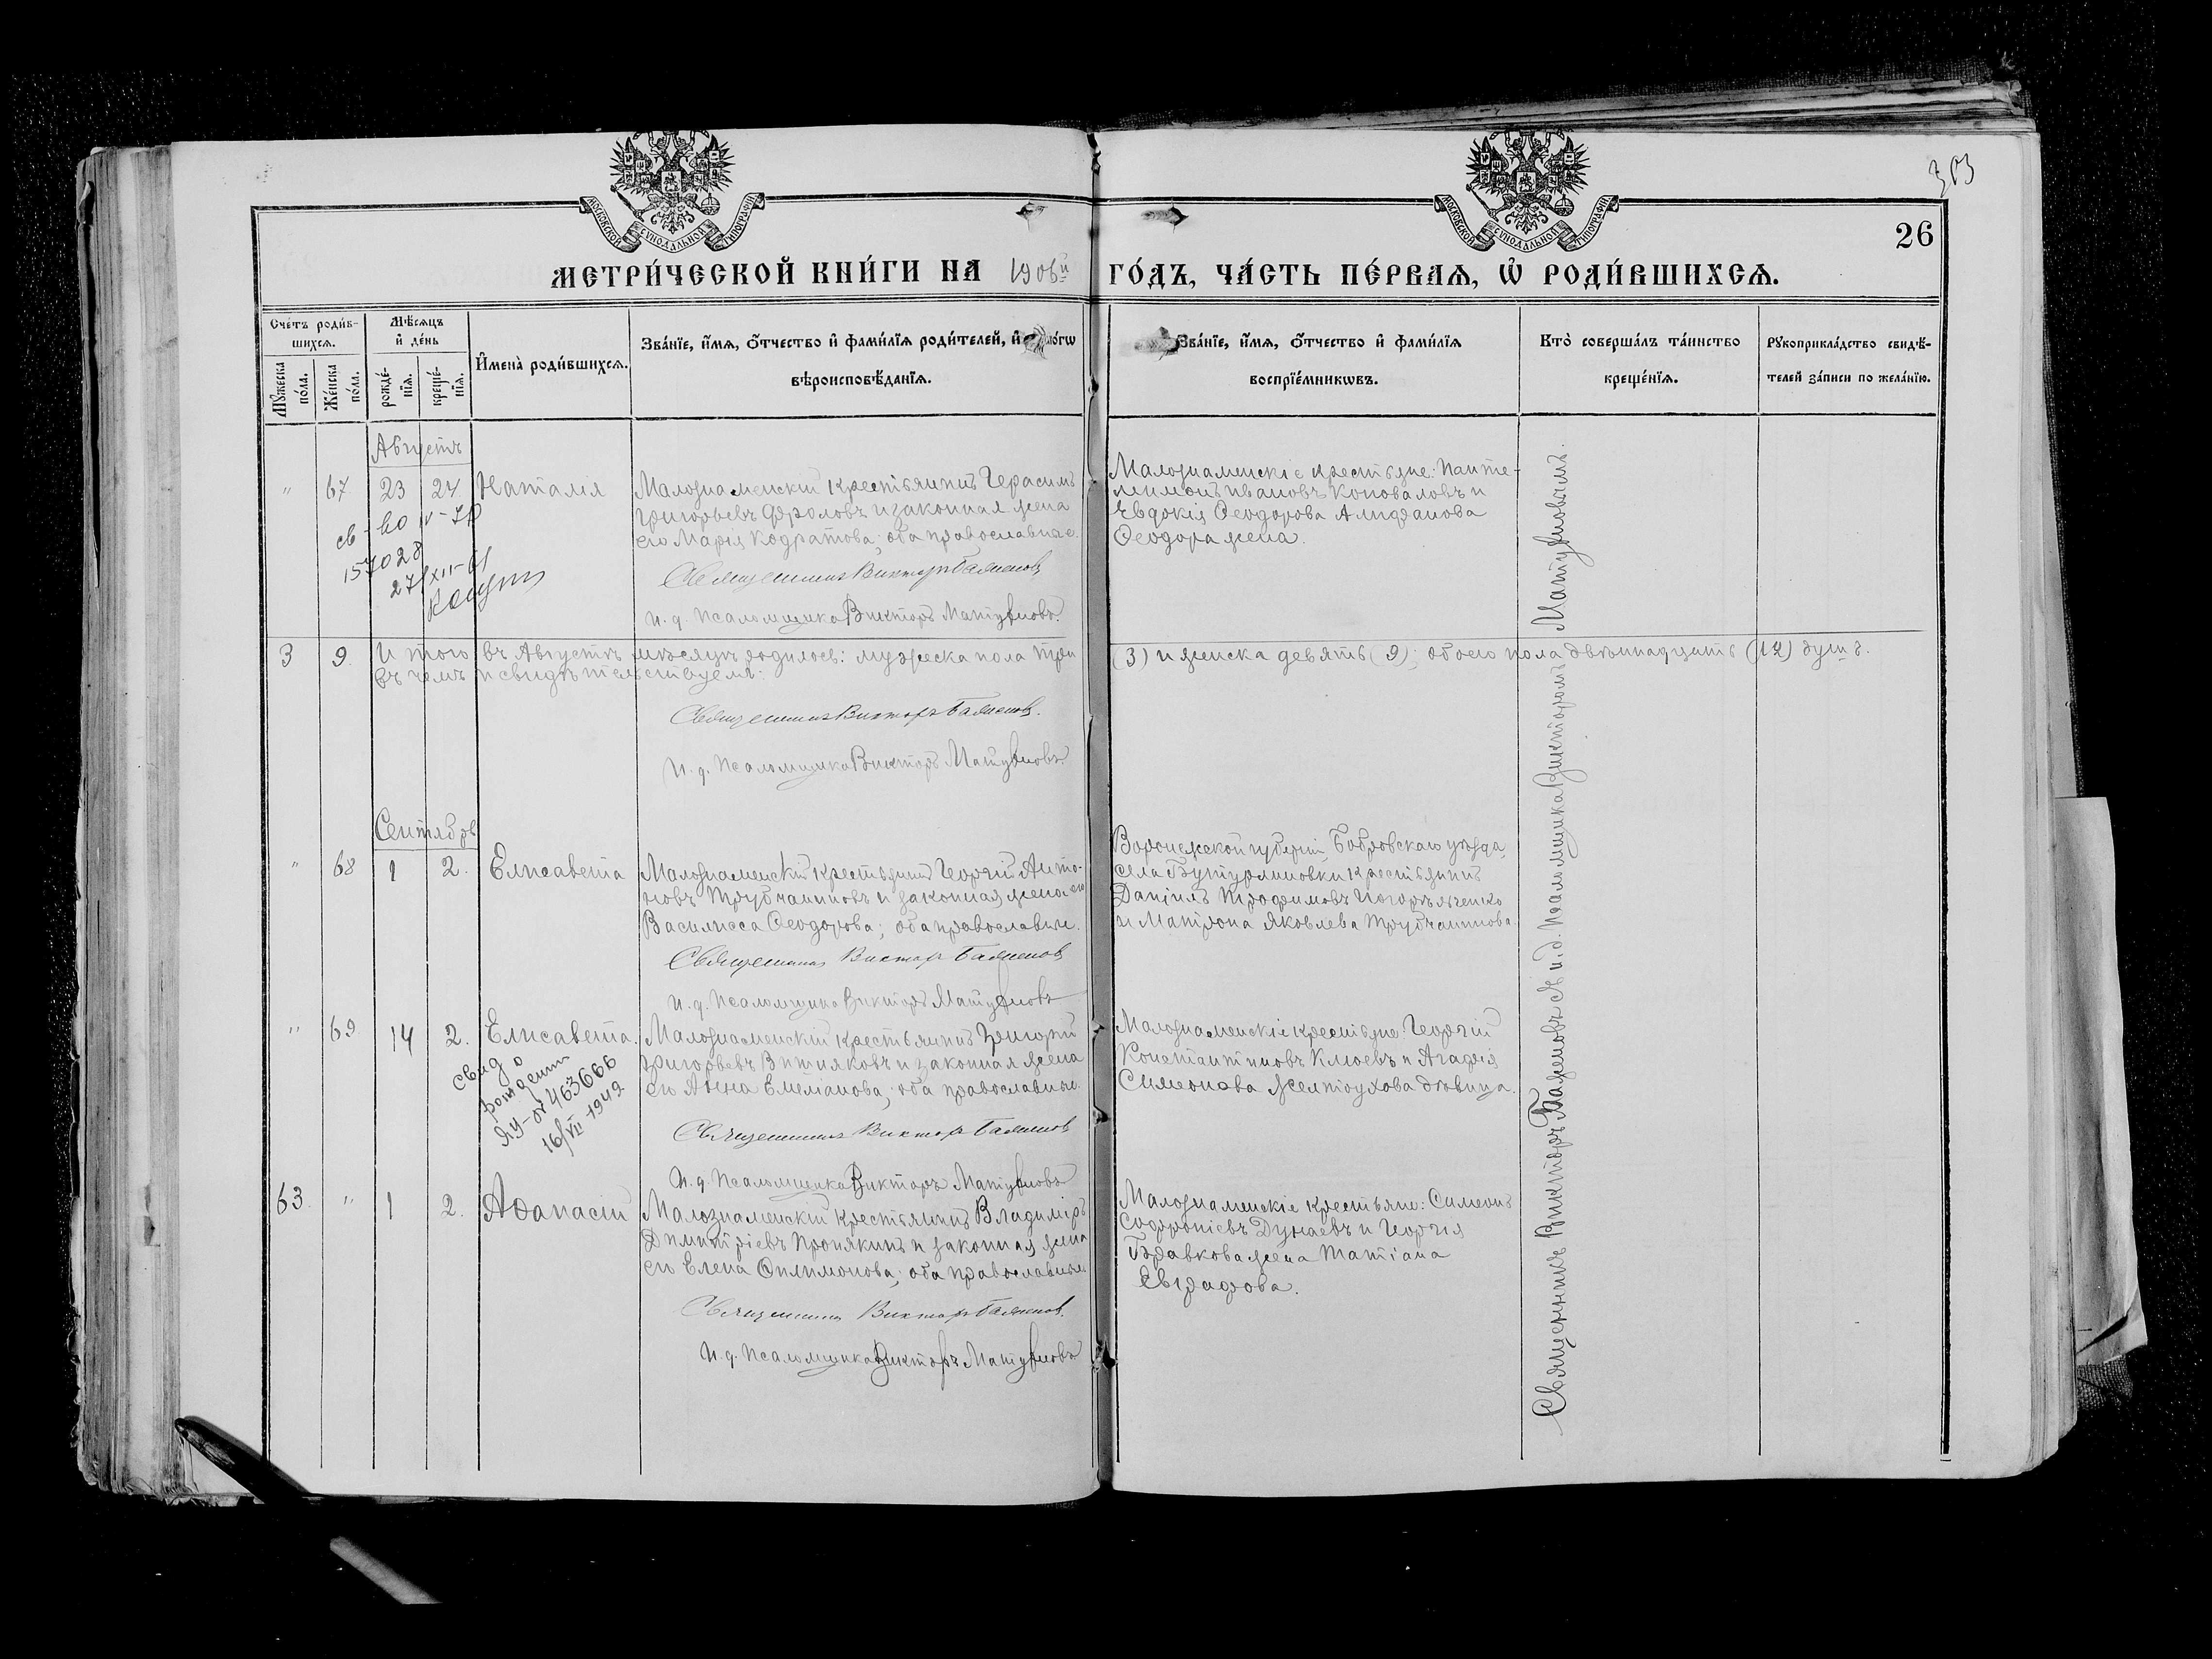 303
26
МОСКОВСКОЙ СѴНОДАЛЬНОЙ ТИПОГРАФІИ
МОСКОВСКОЙ СѴНОДАЛЬНОЙ ТИПОГРАФІИ
МЕТРИ́ЧЕСКОЙ КНИ́ГИ НА 1906й ГО́ДЪ, ЧА́СТЬ ПЕ́РВАЯ, Ѡ҆ РОДИ́ВШИХСЯ.
Сче́тъ роди́в-
шихся.
Мѣ́сяцъ
и҆ де́нь
Мꙋ́жеска по́ла.
Же́нска по́ла.
рожде́-
нїя.
креще́-
нїя.
И҆мена̀ роди́вшихся.
Зва́нїе, и҆́мя, ѻ҆́тчество и҆ фами́лїя роди́телей, и҆
вѣроисповѣ́данїя.
Зва́нїе, и҆́мя, ѻ҆́тчество и҆ фами́лїя
воспрїе́мникѡвъ.
Кто̀ соверша́лъ та́инство
креще́нїя.
Рꙋкоприкла́дство свидѣ́-
телей за́писи по жела́нїю.
Августъ
" 67 23 24 Наталія
Малознаменскій крестьянинъ Герасимъ
Григорьевъ Фроловъ и законная жена
его Марія Кодратова; оба православные.
Священникъ Викторъ Баженовъ
И. д. Псаломщика Викторъ Матуѳновъ.
Малознаменскіе крестьяне: Панте-
лимонъ Ивановъ Коноваловъ и
Евдокія Ѳеодорова Алифанова
Ѳеодора жена.
157028
3 9 Итого въ Августѣ мѣсяцѣ родилось: мужеска пола три (3) и женска девять (9); обоего пола двѣнадцать (12) душъ.
въ чемъ и свидѣтельствуемъ:
Священникъ Викторъ Баженовъ.
И. д. Псаломщика Викторъ Матуѳновъ
Сентябрь
" 68 1 2. Елисавета
Малознаменскій крестьянинъ Георгій Анто-
новъ Трубчаниновъ и законная жена его
Василисса Ѳеодорова; оба православные.
Священникъ Викторъ Баженовъ
И. д. Псаломщика Викторъ Матуѳновъ
Воронежской губерніи, Бобровскаго уѣзда,
села Бутурлиновки крестьянинъ
Даніилъ Трофимовъ Погорѣльченко
и Матрона Яковлева Трубчанинова.
" 69 14 2. Елисавета.
Малознаменскій крестьянинъ Григорій
Григорьевъ Витняковъ и законная жена
его Анна Емеліанова; оба православные.
Священникъ Викторъ Баженовъ
И. д. Псаломщика Викторъ Матуѳновъ
Малознаменскіе крестьяне: Георгій
Константиновъ Клюевъ и Агафія
Симеонова Желтоухова дѣвица.
свид о
рождении
ЯУ-№ 463666
16/VII-1942
63. " 1 2. Аѳанасій
Малознаменскій крестьянинъ Владиміръ
Димитріевъ Пронякинъ и законная жена
его Елена Филимонова; оба православные.
Священникъ Викторъ Баженовъ.
И. д. Псаломщика Викторъ Матуѳновъ
Малознаменскіе крестьяне: Симеонъ
Софроніевъ Дунаевъ и Георгія
Бравкова жена Татіана
Евграфова.
Священникъ Викторъ Баженовъ съ и. д. Псаломщика Викторомъ Матуѳновымъ.